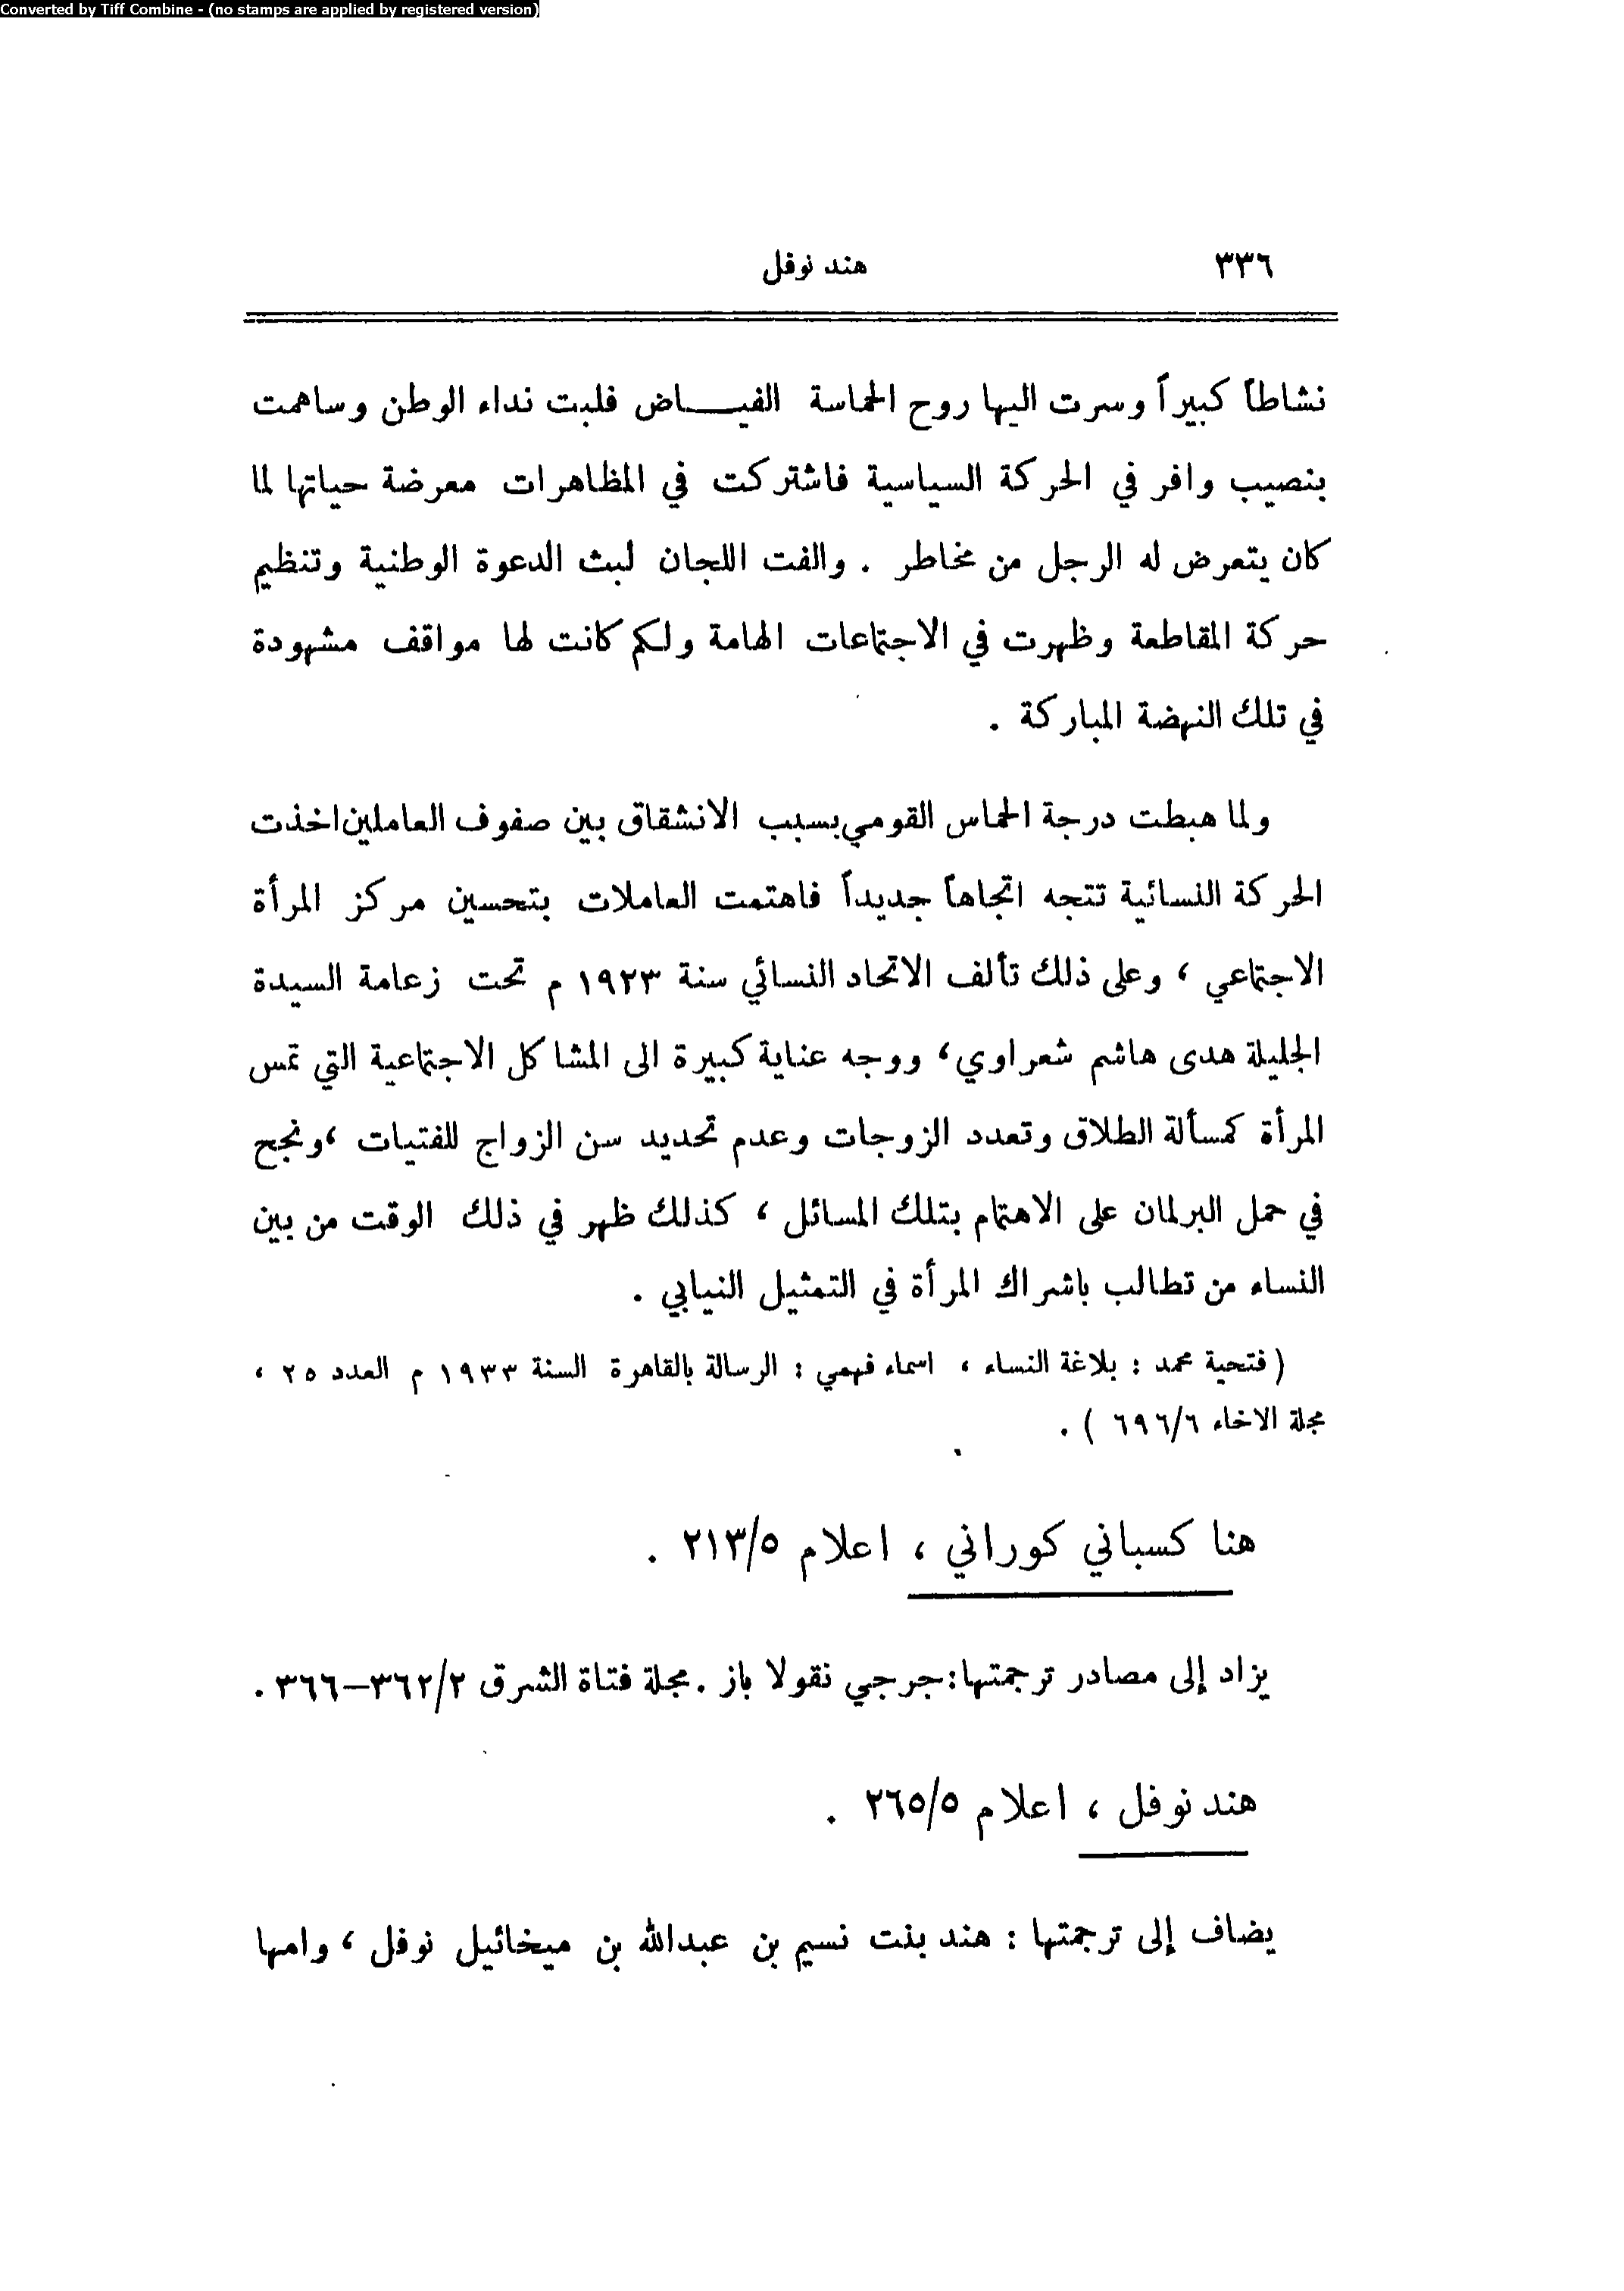 Converted by Tiff Combine - (no stamps are applied by registered version)
٣٣٦ هند نوفل
نشاطاً كبيراً وسرت اليها روح الحماسة الفيـــاض فلبت نداء الوطن وساهمت
بنصيب وافر في الحركة السياسية فاشتركت في المظاهرات معرضة حياتها لما
كان يتعرض له الرجل من مخاطر . والفت اللجان لبث الدعوة الوطنية وتنظيم
حركة المقاطعة وظهرت في الاجتماعات الهامة ولكم كانت لها مواقف مشهودة
في تلك النهضة المباركة .
ولما هبطت درجة الحماس القومي بسبب الانشقاق بين صفوف العاملين اخذت
الحركة النسائية تتجه اتجاهاً جديداً فاهتمت العاملات بتحسين مركز المرأة
الاجتماعي ، وعلى ذلك تألف الاتحاد النسائي سنة ١٩٢٣ م تحت زعامة السيدة
الجليلة هدى هاشم شعراوي ، ووجه عناية كبيرة الى المشاكل الاجتماعية التي تمس
المرأة كمسألة الطلاق وتعدد الزوجات وعدم تحديد سن الزواج للفتيات ، ونجح
في حمل البرلمان على الاهتمام بتلك المسائل ، كذلك ظهر في ذلك الوقت من بين
النساء من تطالب باشراك المرأة في التمثيل النيابي .
( فتحية محمد : بلاغة النساء ، اسماء فهمي : الرسالة بالقاهرة السنة ١٩٣٣ م العدد ٢٥ ،
مجلة الاخاء ٦٩٦/٦ ) .
هنا كسباني كوراني ، اعلام ٢١٣/٥ .
يزاد إلى مصادر ترجمتها: جرجي نقولا باز . مجلة فتاة الشرق ٣٦٢/٢–٣٦٦ .
هند نوفل ، اعلام ٢٦٥/٥ .
يضاف إلى ترجمتها : هند بنت نسيم بن عبدالله بن ميخائيل نوفل ، وامها